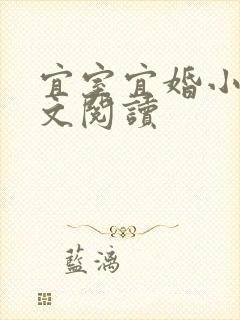 宜室宜婚小
文閱讀
藍漓